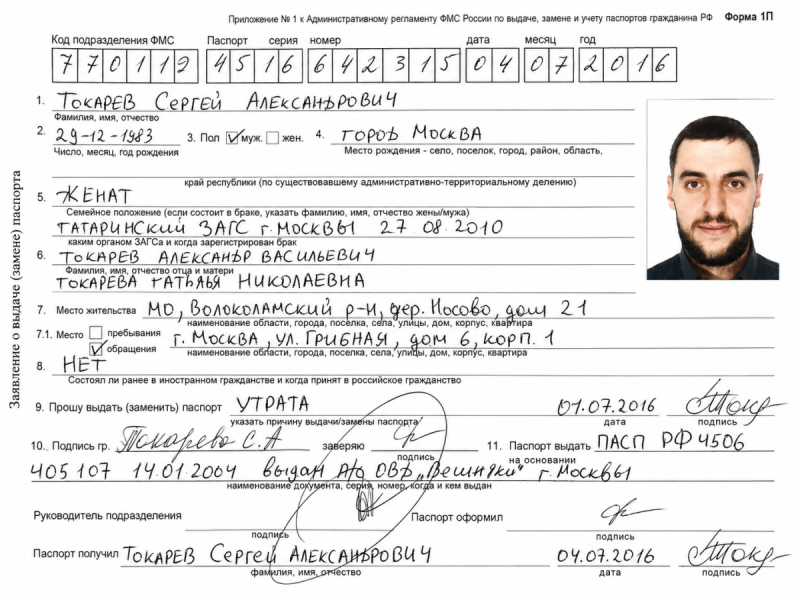 Приложение № 1 к Административному регламенту ФМС России по выдаче, замене и учету паспортов гражданина РФ Форма 1П
Код подразделения ФМС Паспорт серия номер дата месяц год
770112 4516 642315 04 07 2016
Заявление о выдаче (замене) паспорта
1. Токарев Сергей Александрович
Фамилия, имя, отчество
2. 29-12-1983 3. Пол муж. жен. 4. город Москва
Число, месяц, год рождения Место рождения - село, поселок, город, район, область,
край республики (по существовавшему административно-территориальному делению)
5. Женат
Семейное положение (если состоит в браке, указать фамилию, имя, отчество жены/мужа)
Гагаринский ЗАГС г. Москвы 27 08 2010
каким органом ЗАГСа и когда зарегистрирован брак
6. Токарев Александр Васильевич
Фамилия, имя, отчество отца и матери
Токарева Татьяья Николаевна
7. Место жительства МО, Волоколамский р-н, дер. Носово, дом 21
наименование области, города, поселка, села, улицы, дом, корпус, квартира
7.1. Место пребывания
обращения г. Москва, ул. Грибная, дом 6, корп. 1
наименование области, города, поселка, села, улицы, дом, корпус, квартира
8. Нет
Состоял ли ранее в иностранном гражданстве и когда принят в российское гражданство
9. Прошу выдать (заменить) паспорт утрата 01.07.2016
указать причину выдачи/замены паспорта дата подпись
10. Подпись гр. Токарева С.А заверяю 11. Паспорт выдать пасп РФ 4506
подпись на основании
405107 14.01.2004 выдан ОВД "Вешняки" г. Москвы
наименование документа, серия, номер, когда и кем выдан
Руководитель подразделения Паспорт оформил
подпись подпись
Паспорт получил Токарев Сергей Александрович 04.07.2016
фамилия, имя, отчество дата подпись